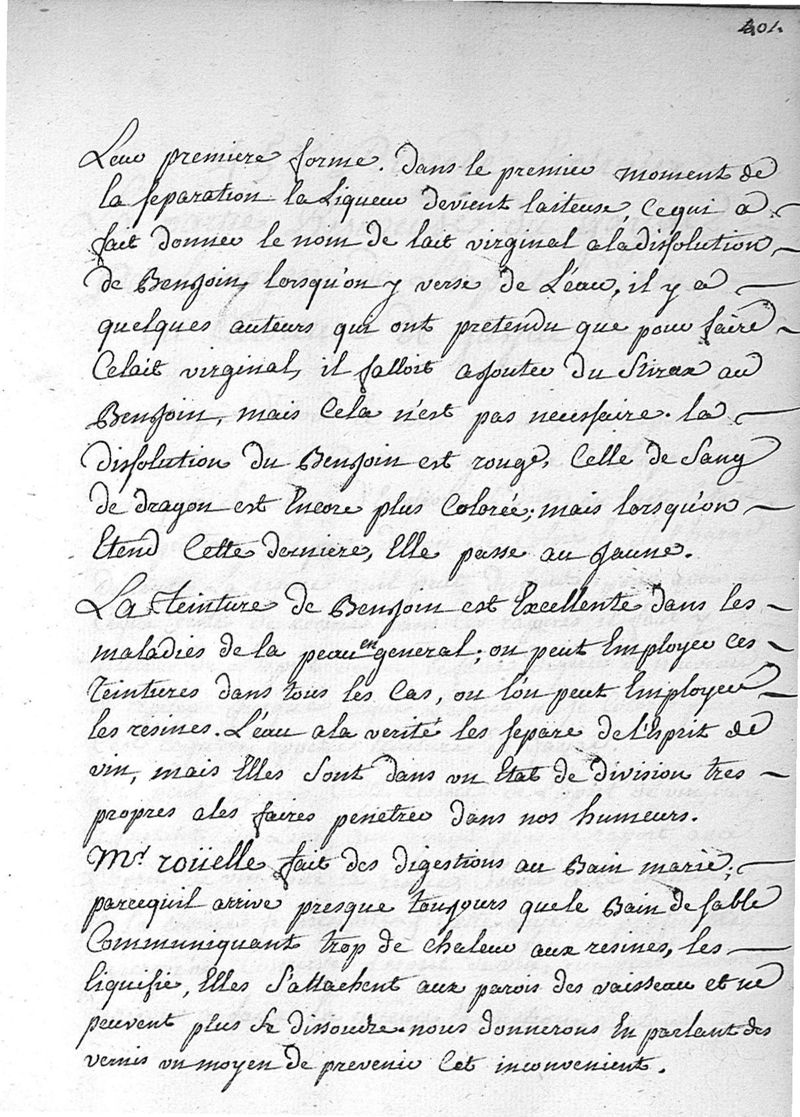 401.
Leur premiere forme. dans le premier moment de
la separation la Liqueur devient laiteuse, ce qui a
fait donner le nom de lait virginal a la dissolution
de Benjoin, lorsqu'on y verse de L'eau, il y a
quelques auteurs qui ont pretendu que pour faire
Ce lait virginal, il falloit ajouter du Stirax au
Benjoin, mais Cela n'est pas necessaire. la
dissolution du Benjoin est rouge, Celle de Sang
de dragon est Encore plus Colorée; mais lorsqu'on
Etend Cette derniere, Elle passe au jaune.
La Teinture de Benjoin est Excellente dans les
maladies de la peau en general; on peut Employer ces
Teintures dans tous les Cas, ou l'on peut Employer
les resines. L'eau a la verité les separe de l'esprit de
vin, mais Elles Sont dans un Etat de division tres
propres a les faires penetrer dans nos humeurs.
Mr. roüelle fait des digestions au Bain marie;
parcequil arrive presque toujours que le Bain de sable
Communiquant trop de chaleur aux resines, les
liquifie, Elles S'attachent aux parois des vaisseau et ne
peuvent plus se dissoudre. nous donnerons En parlant des
vernis un moyen de prevenir Cet inconvenient.